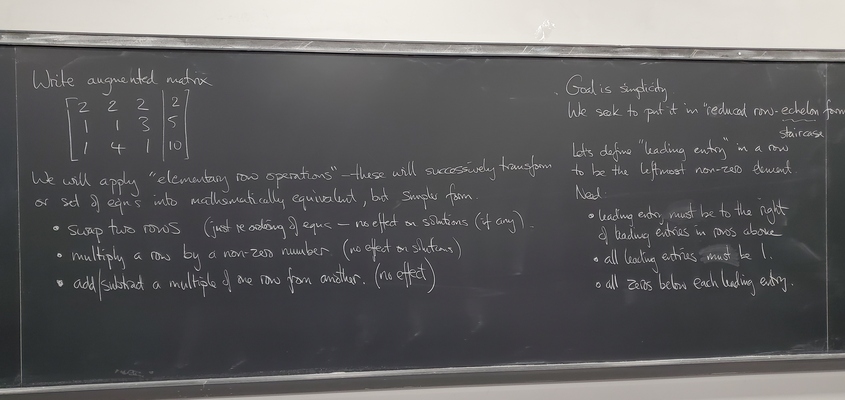 Write augmented matrix
2 2 2 | 2
1 1 3 | 5
1 4 1 | 10
We will apply "elementary row operations" – these will successively transform
or set of eqn's into mathematically equivalent, but simpler form.
• swap two rows (just reordering of eqns – no effect on solutions (if any).
• multiply a row by a non-zero number (no effect on solutions)
• add/subtract a multiple of one row from another. (no effect)
Goal is simplicity.
We seek to put it in "reduced row-echelon form
staircase
Let's define "leading entry" in a row
to be the leftmost non-zero element.
Need:
• leading entry must be to the right
of leading entries in rows above
• all leading entries must be 1.
• all zeros below each leading entry.